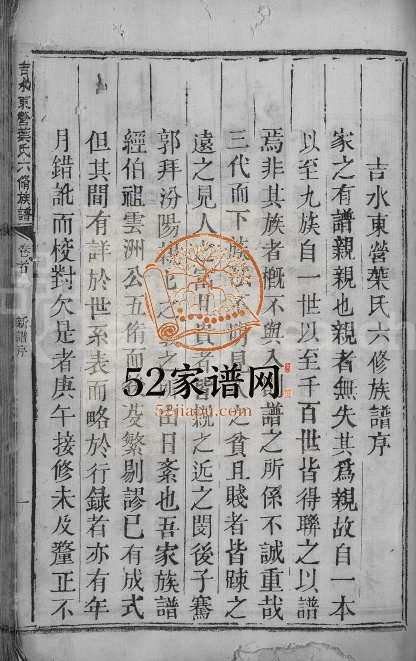 吉水東營葉氏六修族譜序
家之有譜親親也親者無失其爲親故自一本
以至九族自一世以至千百世皆得聯之以譜
焉非其族者槪不與入譜之所係不誠重哉
三代而下之貧且賤者皆踈之
遠之見人富且貴者皆親之近之閔後子騫
郭拜汾陽之出日紊也吾家族譜
經伯祖雲洲公五脩而芟繁剔謬已有成式
但其間有詳於世系表而略於行錄者亦有年
月錯訛而校對欠是者庚午接修未及釐正不
吉水東營葉氏六脩族譜
卷首
新譜序
52家谱网
52jiapu.com